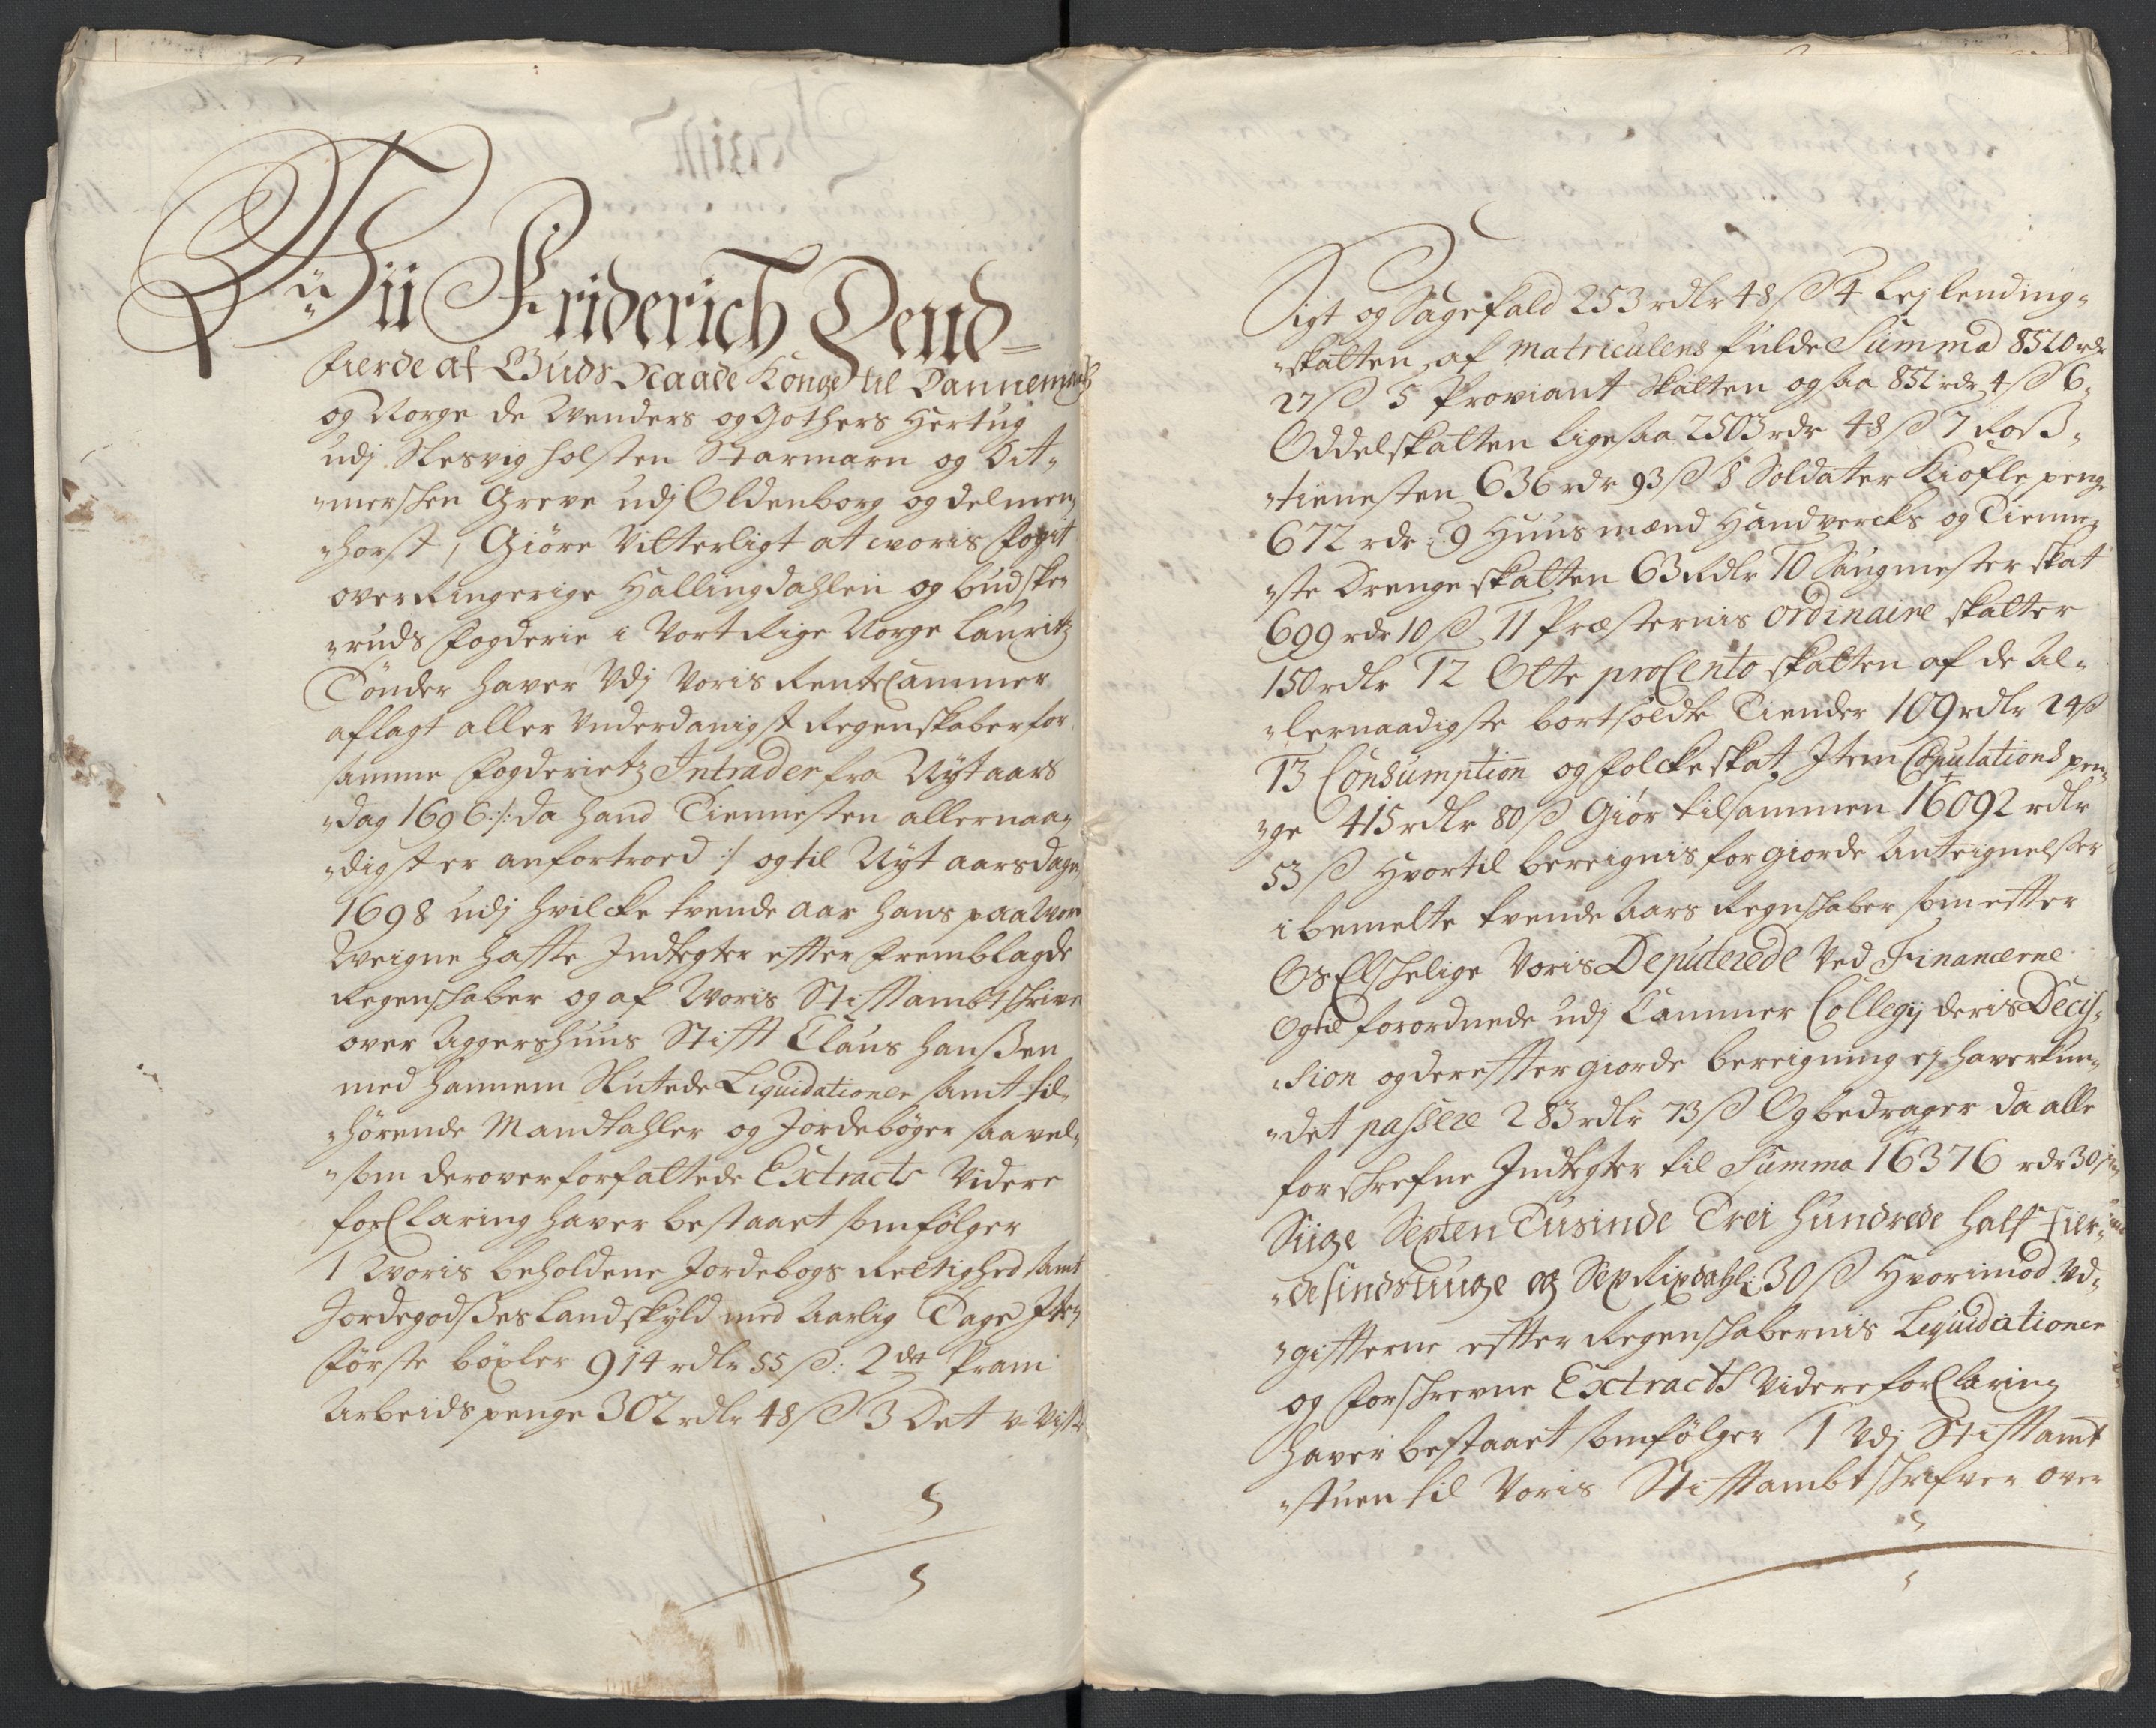 Wii Friderich Dend=
fierde af Guds Naade Konge til Dannemarck
og Norge de Wenders og Gothers Hertug
udj Slesvig Holsten Starmarn og Dit„
„mersken Greve udj Oldenborg og Delmen„
„horst, Giøre Vitterligt at woris Fogit
over Ringerige Hallingdahlen og Budske„
„ruds Fogderie i Vort Rige Norge Lauritz
Tönder haver Vdj Voris RenteCammer
aflagt aller Vnderdanigst Regenskaber for
samme Fogderietz Intrader fra Nÿtaars
„dag 1696 /: da hand Tiennesten allernaa„
„digst er anfortroed :/ og til Nÿt aarsdagen
1698 udj hvilcke tvende aar hans paa Wore
Weigne hafte Indtegter efter Fremblagde
Regenskaber og af Woris Stiftambtskriver
over Aggershuus Stift Claus Hanßen
med hannem Slutede Liquidationer samt til„
„hørende Mandtahler og Jordebøger saavel„
„som derover forfattede Extracts Videre
forClaring haver bestaaet som følger
1 Woris beholdene Jordebogs Rettighed samt
Jordegodsses Landskÿld med Aarlig Tage Item
Første böxler 914 rdlr 55 ß: 2det Pram
Arbeids penge 302 rdlr 48 ß 3 Det u-Viste
Sigt og Sagefald 253 rdlr 48 ß 4 Lejlending„
„skatten af Matriculens fulde Summa 8520 rdr
27 ß 5 Proviant Skatten og saa 852 rdr 4 ß 6„
Oddelskatten ligesaa 2503 rdr 48 ß 7 Roß„
„tienesten 636 rdr 93 ß 8 Soldater Kiofle penge
672 rdr: 9 Huusmænd Handvercks og Tienne„
„ste Drenge skatten 63 Rdlr 10 Saugmester skat
699 rdr 10 ß 11 Præsternis ordinaire skatter
150 rdlr 12 Otte proCento skatten af de Al„
„lernaadigste bortsoldte Tiender 109 rdlr 24 ß
13 Consumption og Folckeskat, Item Copulations pen„
„ge 415 rdlr 80 ß Giør tilsammen 16092 rdlr
53 ß Hvortil bereignis for giorde Anteignelser
i bemelte tvende Aars Regnskaber som efter
Os Elskelige Voris Deputerede Ved Financerne
Og til forordnede udj Cammer Collegij deris Decis„
„sion og derefter giorde bereigning ej haver kun„
„det passere 283 rdlr 73 ß Og bedrager da alle
forskrefne Indtegter til Summa 16376 rdr 30 ß
Siige Sexten Tusinde Trei Hundrede Half Fier„
„desindstiuge og Sex Rixdahl: 30 ß Hvorimod Vd„
„gifterne efter Regenskabernis Liquidationer
og forskrevne Extracts Videre forClaring
haver bestaaet som følger 1 Vdj Stiftamt
„stuen til Voris Stiftambtskrifver over